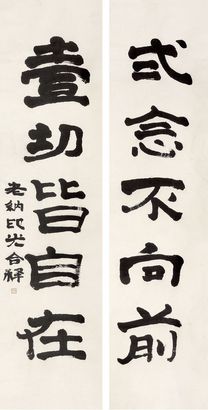 弍念不向前
壹切皆自在
老納印光合釋